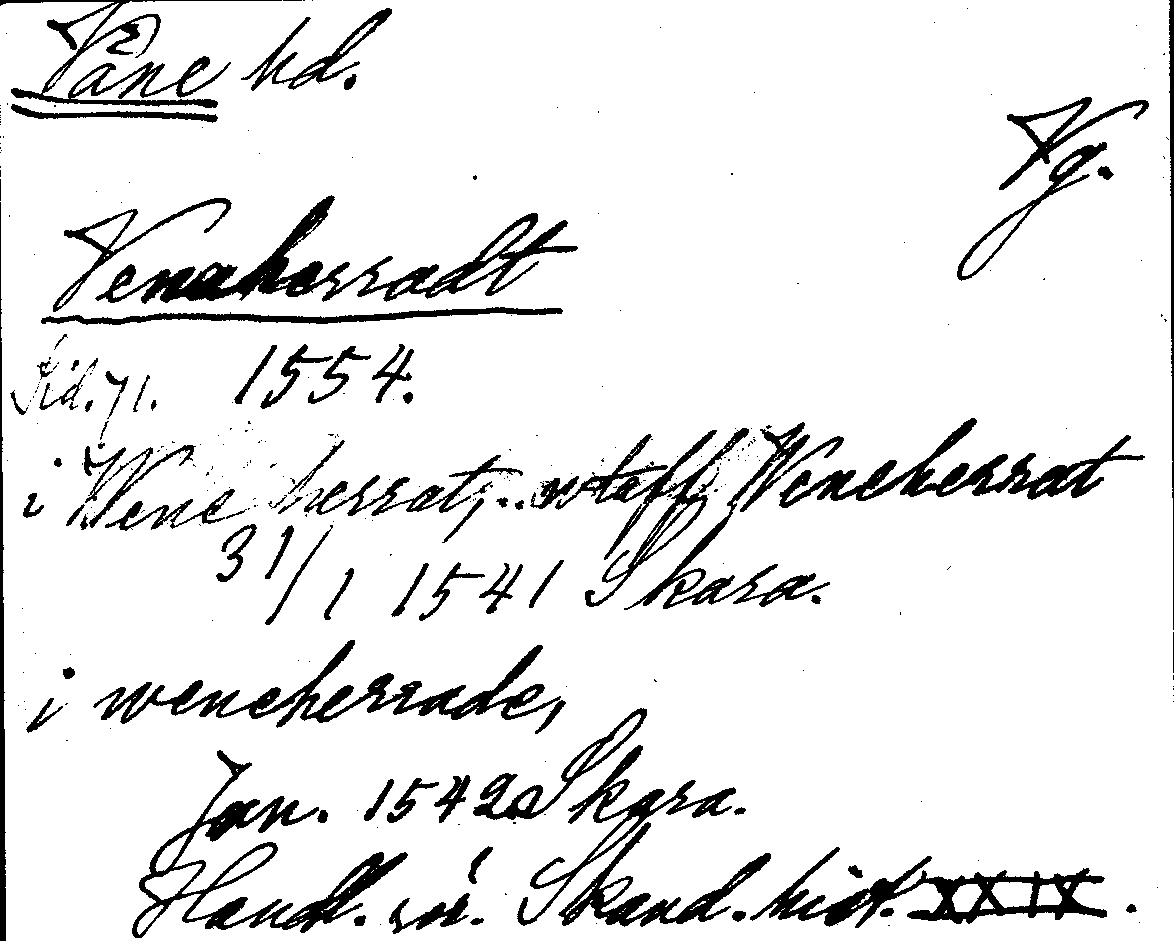 Våne hd.
Vg.
Venaherradt
Sid. 71. 1554.
i Wene herrat, .. wteff Weneherrat
31/1 1541 Skara.
i weneherrade,
Jan. 1542 Skara.
Handl. rör. Skand. hist. XXIX.